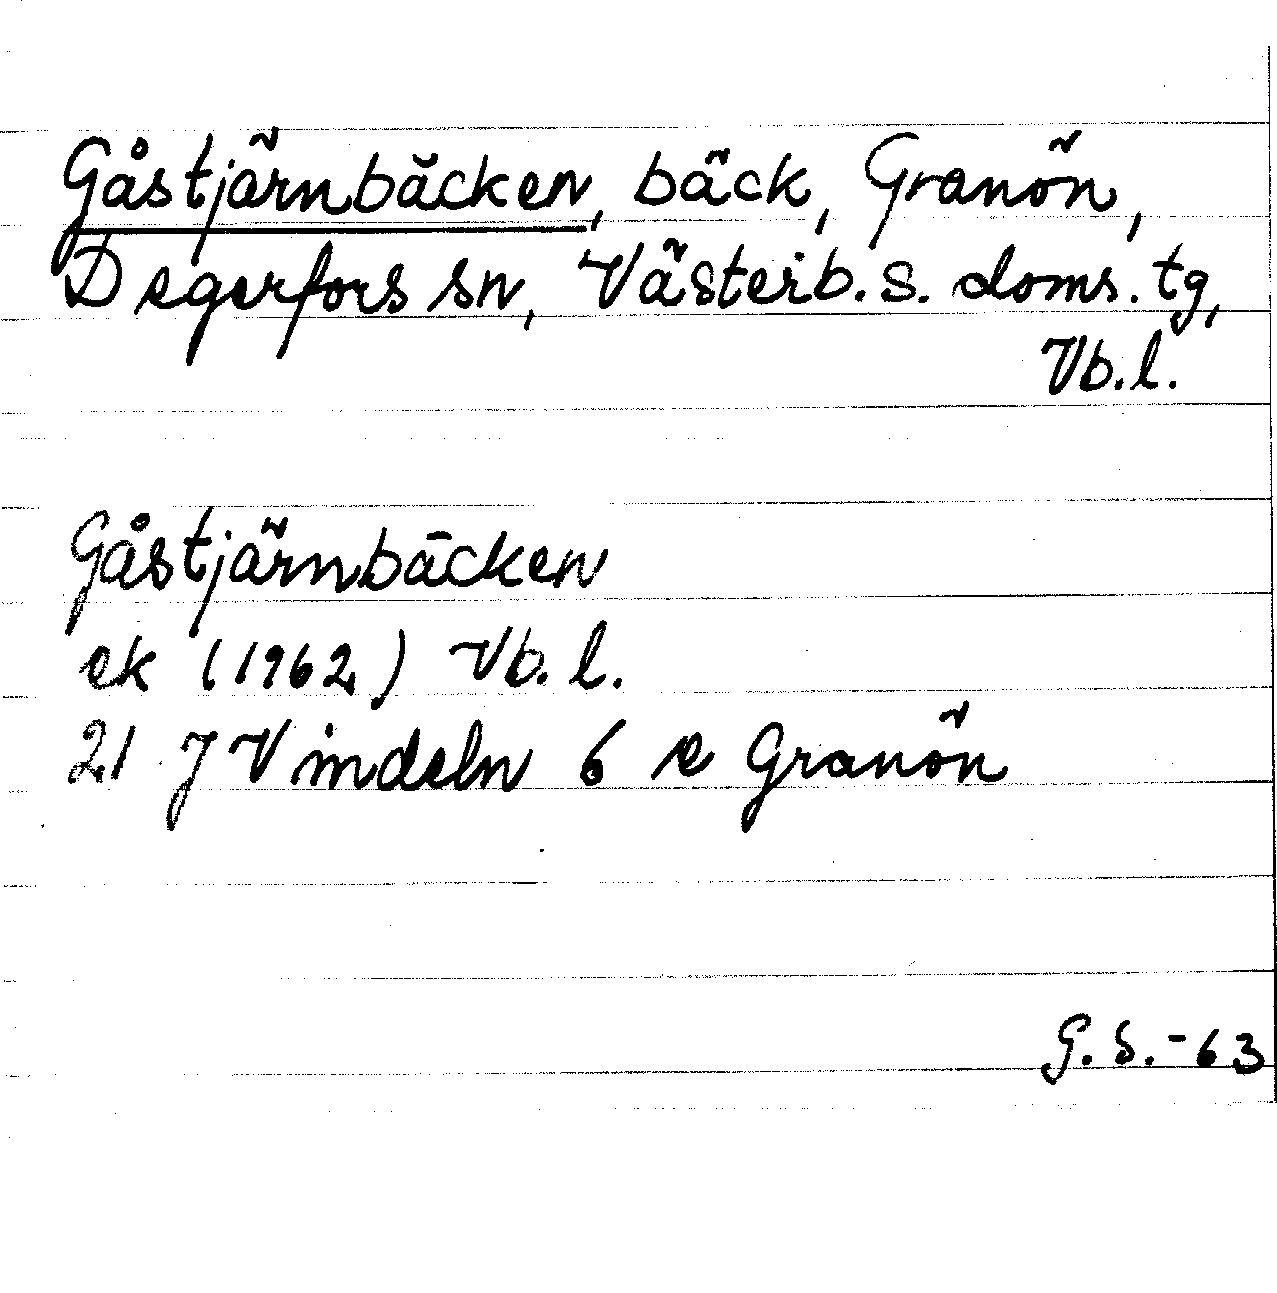 Gåstjärnbäcken, bäck, Granön,
Degerfors sn, Västerb. s. doms. tg,
Vb. l.
Gåstjärnbäcken
ek (1962) Vb. l.
21 J Vindeln 6 e Granön
G. S. -63